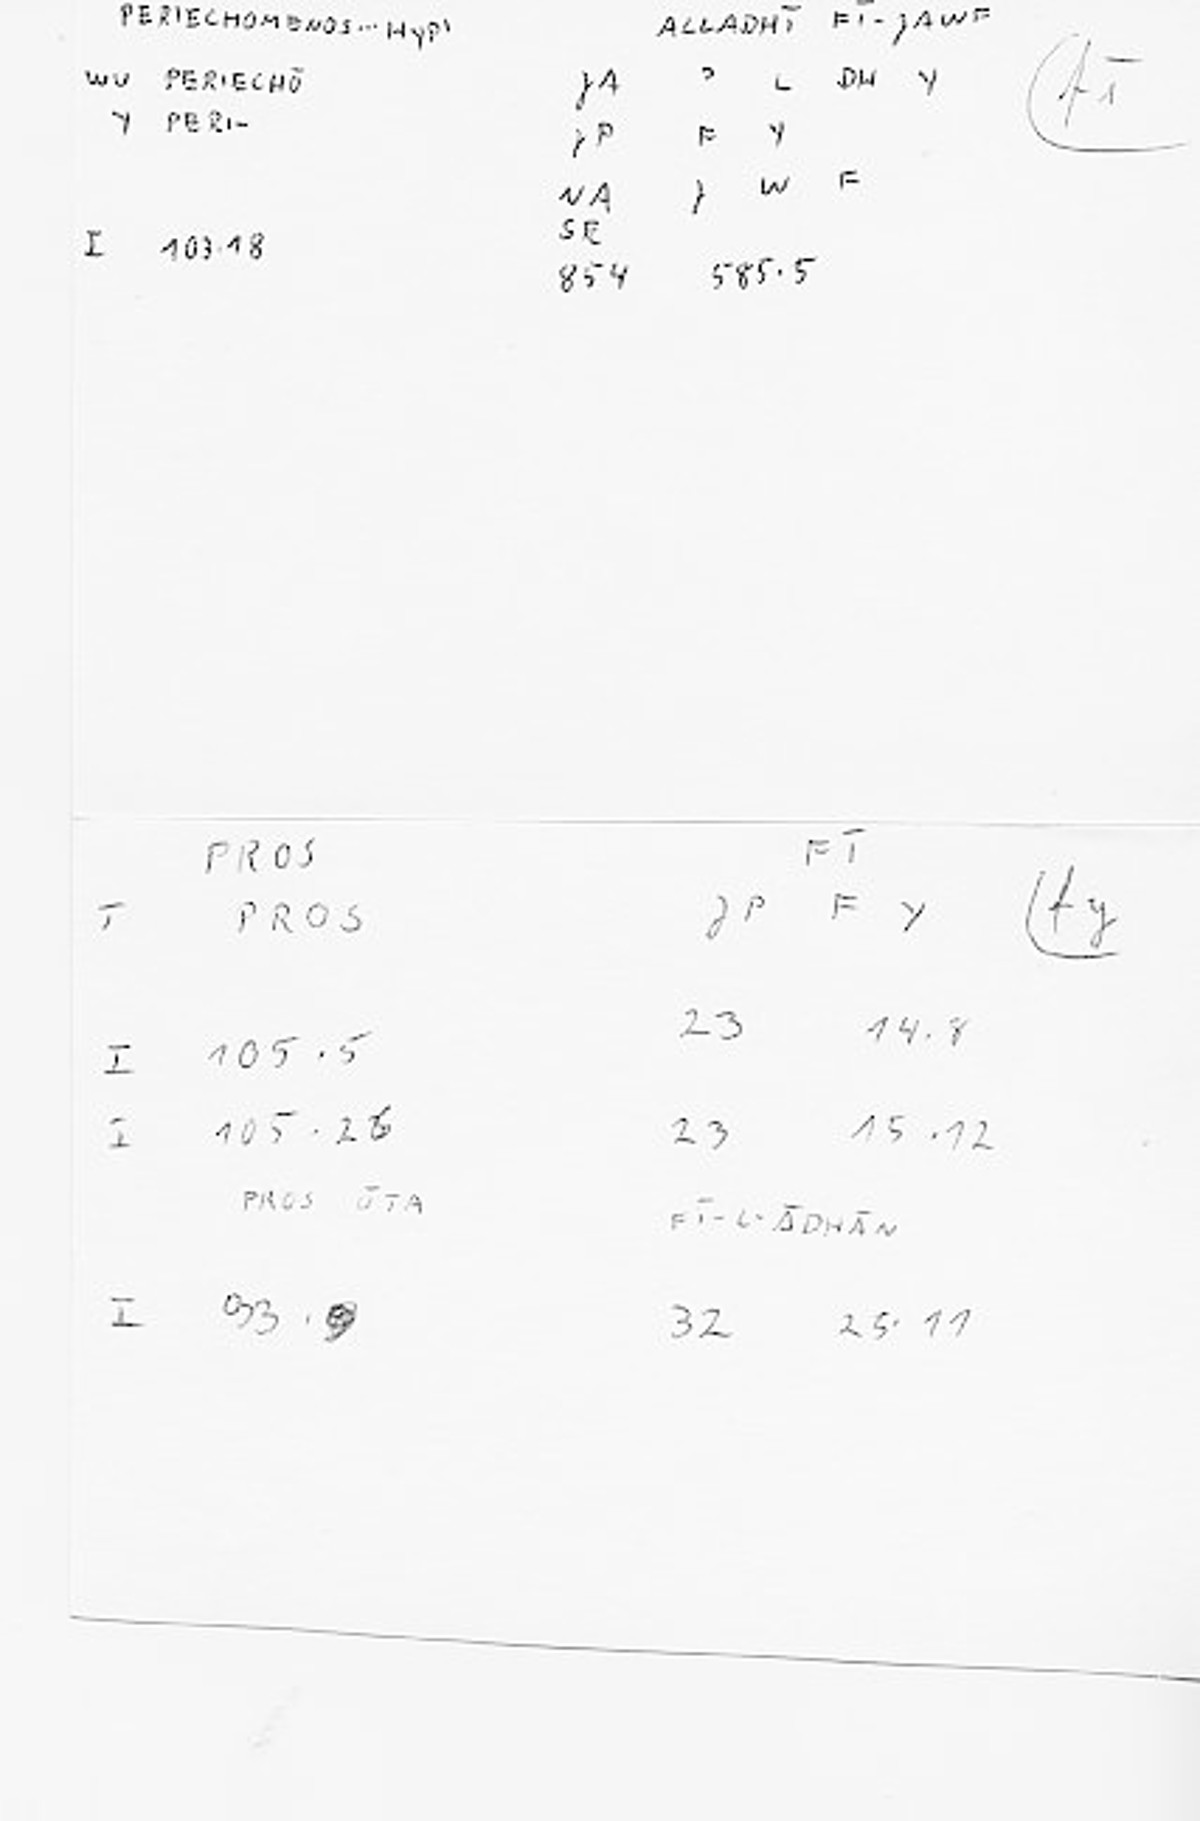 PERIECHOMENOS... HYPI ALLADHĪ FĪ-ȷAWF
WU PERIECHŌ ȷA ɔ L DH Y fī
Y PERI- ȷP F Y
NA ȷ W F
SE
I 103.18
854 585.5
PROS FĪ
T PROS ȷP F Y fy
23 14.8
I 105.5
I 105.26 23 15.12
PROS ŌTA FĪ-L-ĀDHĀN
I 93. 32 25.11